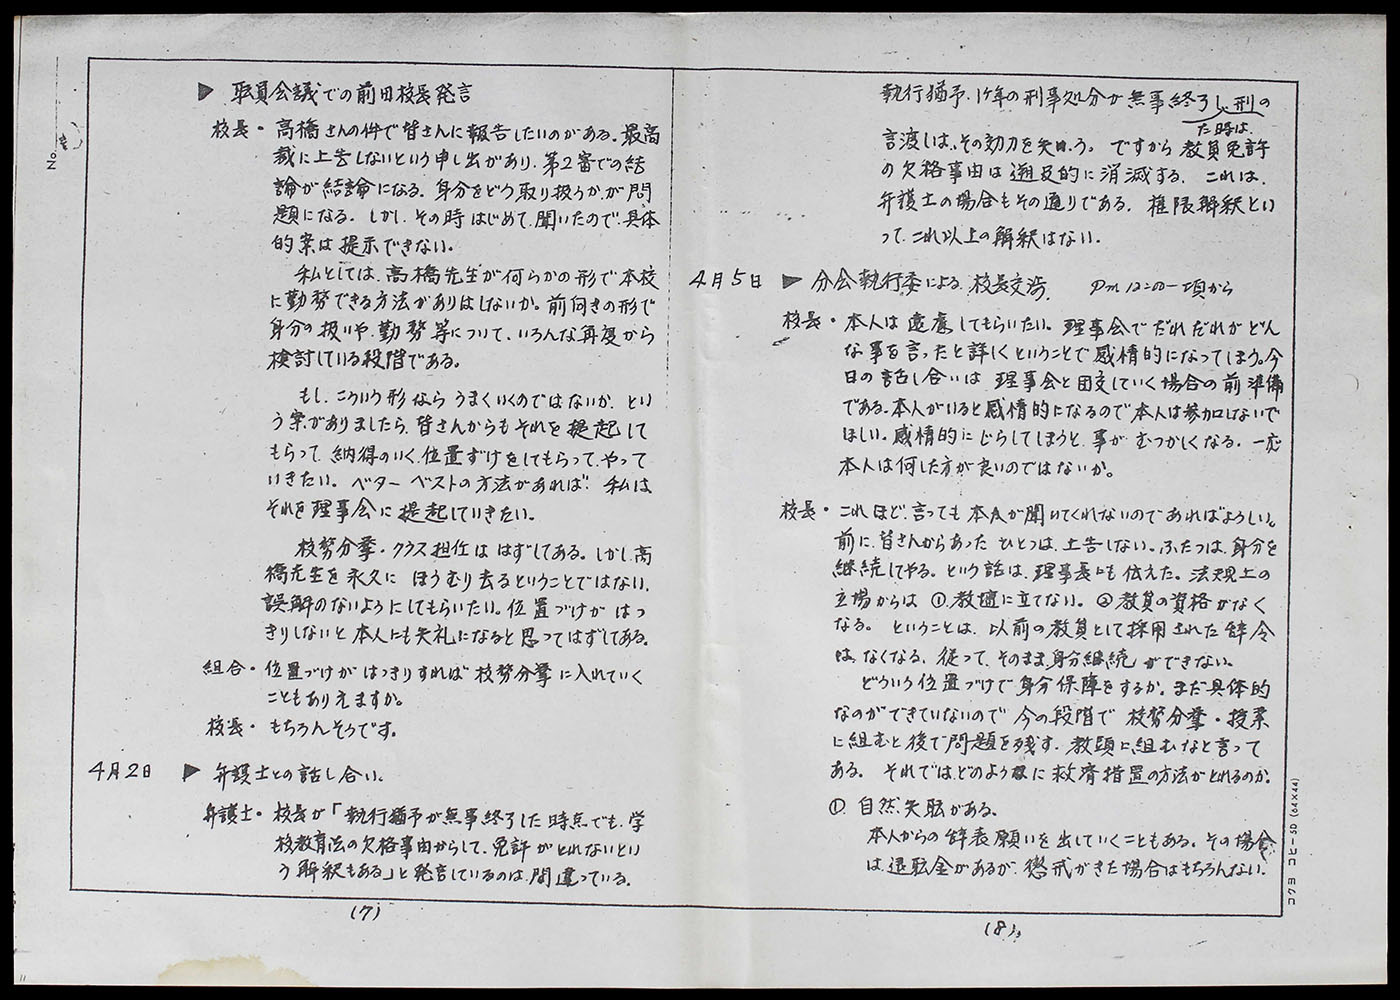 No.
▶ 職員会議での前田校長発言
校長・高橋さんの件で皆さんに報告したいのがある。最高
裁に上告しないという申し出があり、第2審での結
論が結論になる。身分をどう取り扱うか、が問
題になる。しかし、その時はじめて聞いたので、具体
的案は提示できない。
私としては、高橋先生が何らかの形で本校
に勤務できる方法がありはしないか。前向きの形で
身分の扱いや、勤務等について、いろんな角度から
検討している段階である。
もし、こういう形ならうまくいくのではないか、とい
う案がありましたら、皆さんからもそれを提起して
もらって、納得のいく、位置ずけをしてもらって、やって
いきたい。ベター ベストの方法があれば、私は
それを理事会に提起していきたい。
校務分掌・クラス担任ははずしてある。しかし、高
橋先生を永久にほうむり去るということではない、
誤解のないようにしてもらいたい。位置づけがはっ
きりしないと本人にも失礼になると思ってはずしてある。
組合・位置づけがはっきりすれば校務分掌に入れていく
こともありえますか。
校長・もちろんそうです。
4月2日 ▶ 弁護士との話し合い。
弁護士・校長が「執行猶予が無事終了した時点でも、学
校教育法の欠格事由からして、免許がとれないとい
う解釈もある」と発言しているのは、間違っている。
(7)
執行猶予、1ケ年の刑事処分が無事終了し、刑の
た時は、
言渡しは、その効力を失う。ですから教員免許
の欠格事由は遡及的に消滅する。これは、
弁護士の場合もその通りである。権限解釈とい
って、これ以上の解釈はない。
4月5日 ▶ 分会執行委による、校長交渉、 Pm 12:00〜頃から
校長・本人は遠慮してもらいたい。理事会でだれだれがどん
な事を言ったと詳しくということで感情的になってしまう。今
日の話し合いは、理事会と団交していく場合の前準備
である。本人がいると感情的になるので本人は参加しないで
ほしい。感情的にじらしてしまうと、事がむつかしくなる。一応
本人は何した方が良いのではないか。
校長・これほど、言っても本人が聞いてくれないのであればよろしい。
前に、皆さんからあったひとつは、上告しない。ふたつは、身分を
継続してやる。という話は、理事長にも伝えた。法規上の
立場からは ①教壇に立てない。②教員の資格がなく
なる。ということは、以前の教員として採用された辞令
は、なくなる、従って、そのまま、身分継続ができない。
どういう位置づけで身分保障をするか。まだ具体的
なのができていないので今の段階で校務分掌・授業
に組むと後で問題を残す、教頭に組むなと言って
ある。それでは、どのように救済措置の方法がとれるのか。
① 自然失職がある。
本人からの辞表願いを出していくこともある。その場合
は、退職金があるが、懲戒がきた場合はもちろんない。
(8)
コクヨ コヒー50 (64×44)